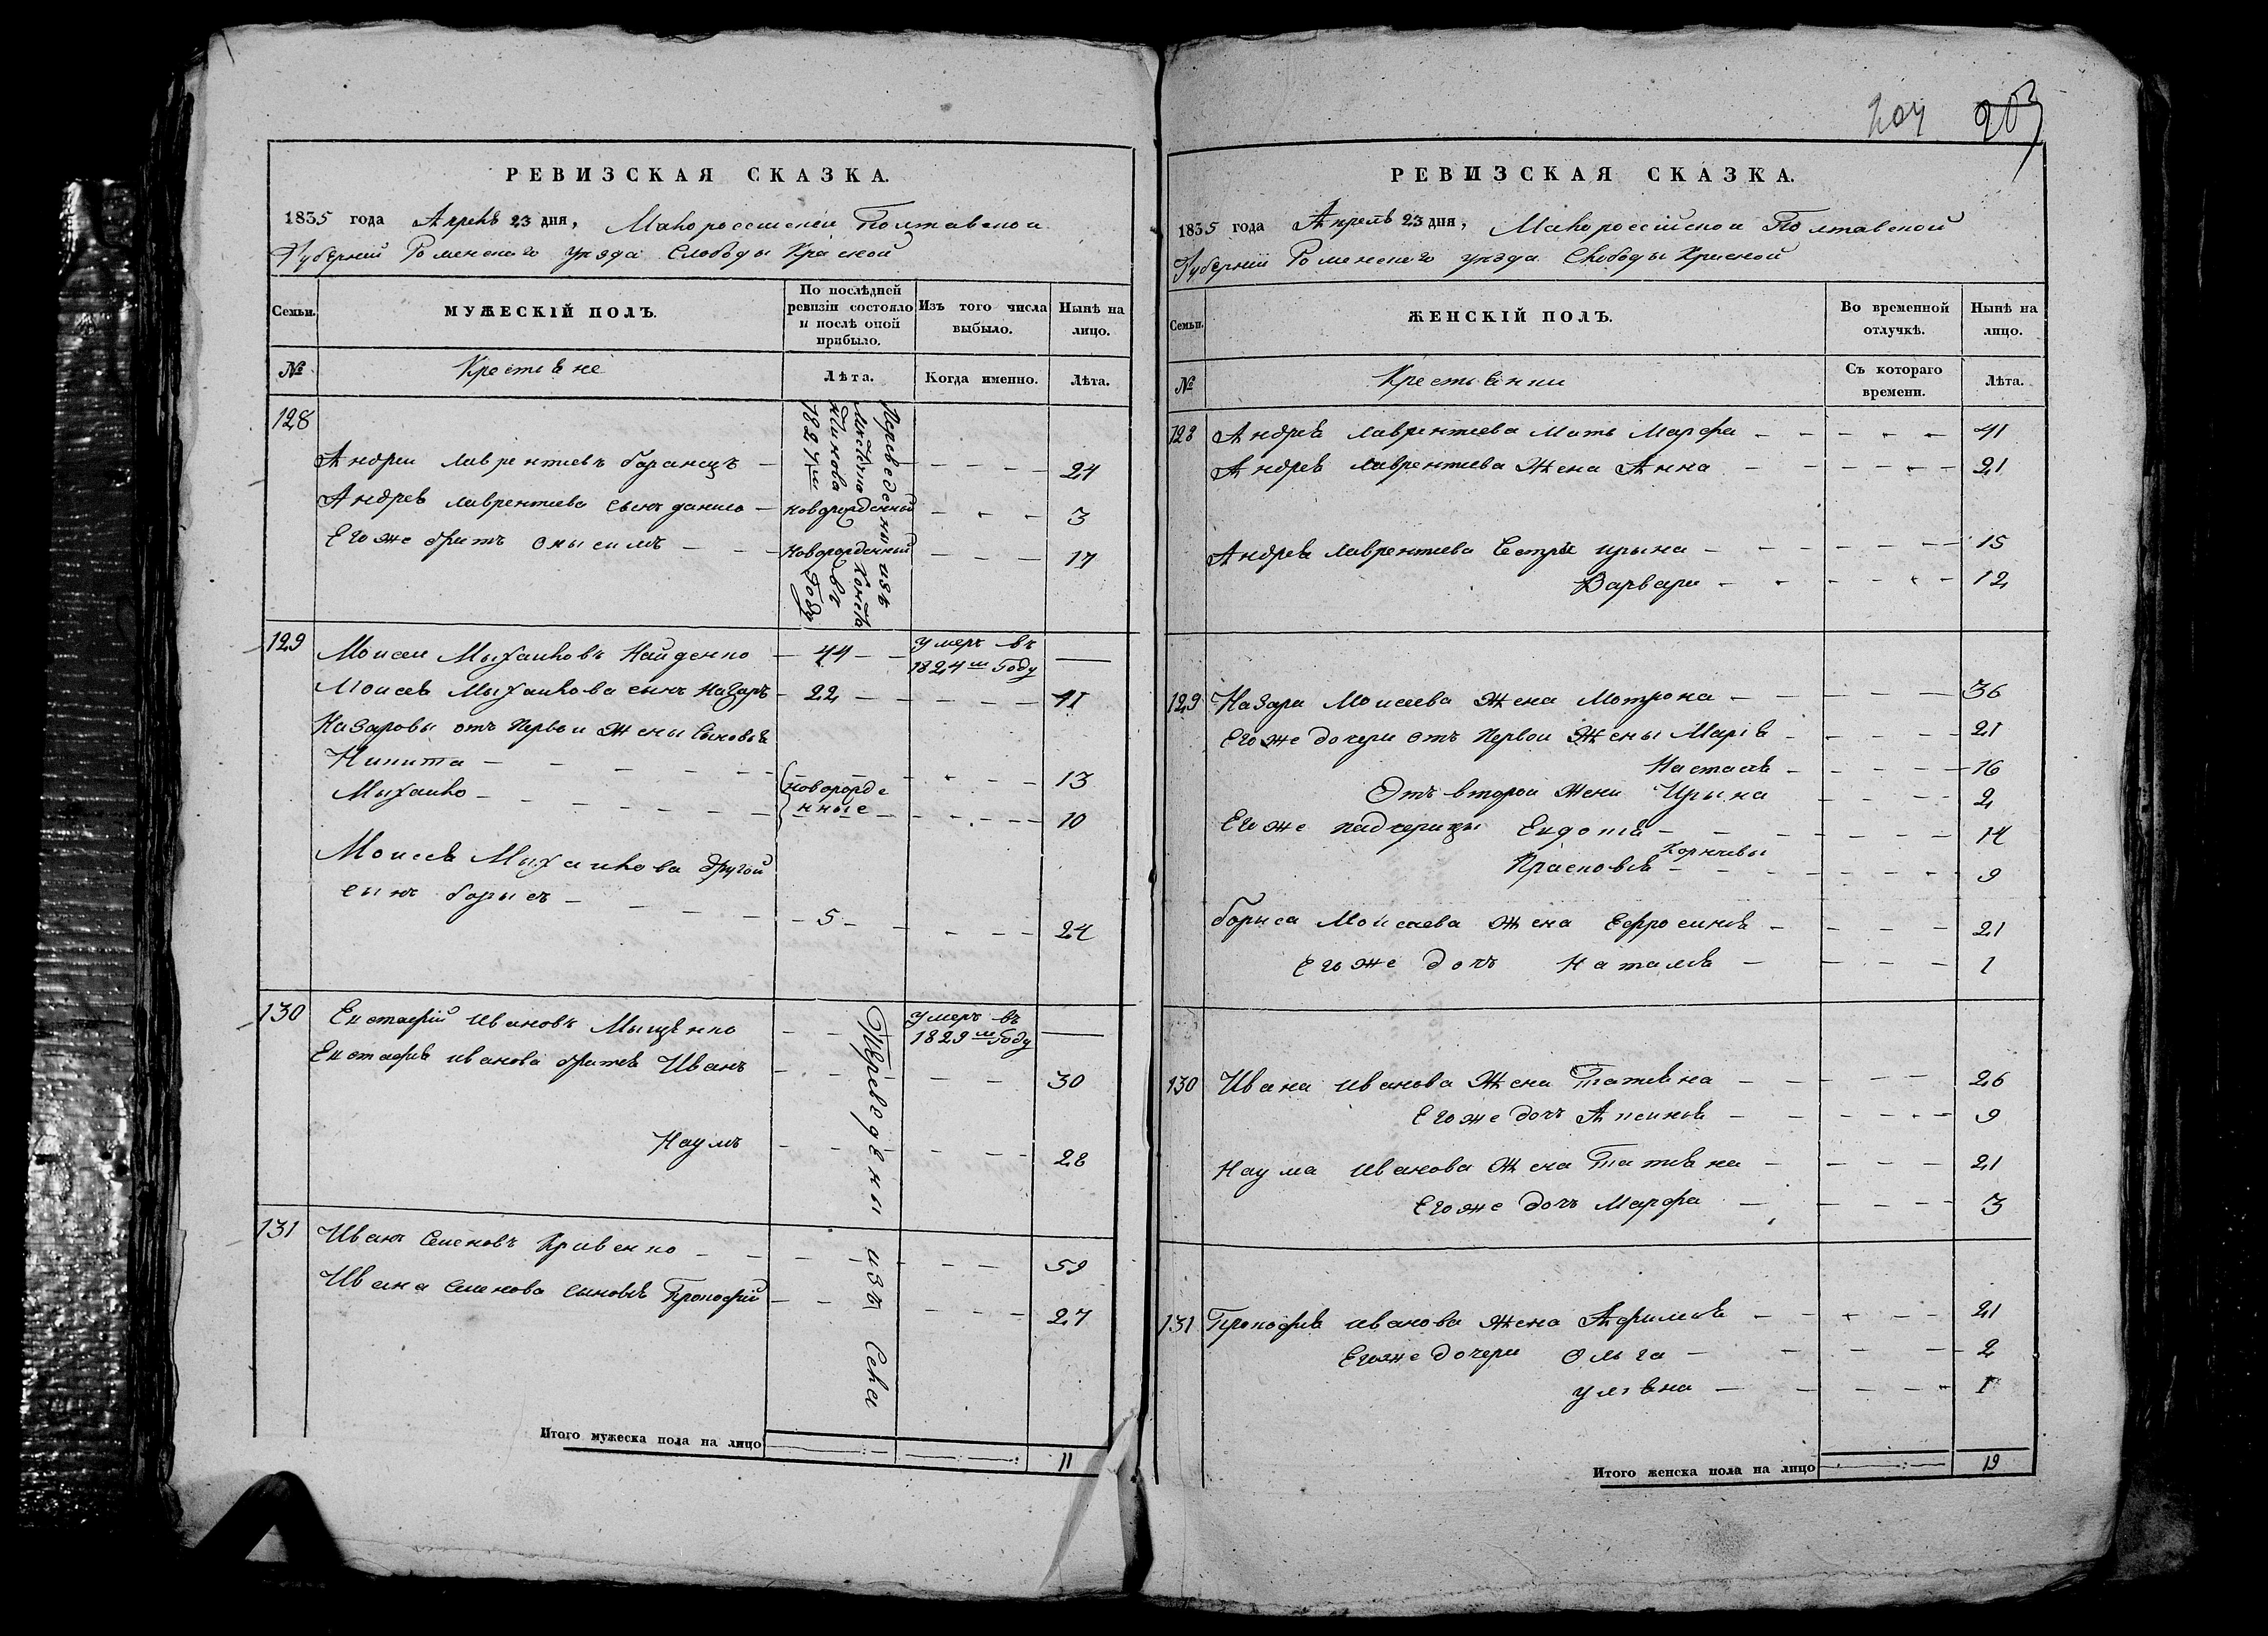 204 203
РЕВИЗСКАЯ СКАЗКА.
1835 года Апрель 23 дня, Малороссийской Полтавской
Губернии Роменского уезда Слободы Красной
Семьи.
МУЖЕСКІЙ ПОЛЪ.
По послѣдней
ревизіи состояло
и послѣ оной
прибыло.
Изъ того числа
выбыло.
Нынѣ на
лицо.
№
Крестьяне
Лѣта.
Когда именно.
Лѣта.
128
Переведены изъ
местечка Констан
тинова въ
1827м году
Андреи лаврентиевъ баранецъ — 24
Андрея лаврентиева сынъ данило — новорожденный 3
Его же братъ Онысимъ — новорожденный 17
129 Моисеи Мыхаиловъ Найденко — 44 — умеръ въ
1824м году —
Моисея Мыхаилова сынъ Назаръ — 22 — 41
Назаровы отъ первои жены сыновья
Никита — 13
новорожде
нные
Мыхаило — 10
Моисея Мыхаилова другой
сынъ борысъ — 5 — 24
130 Евстафій ивановъ Мыщенко — умеръ въ
1829м году —
Евстафия иванова братья Иванъ 30
Наумъ 28
Переведены изъ Села
131 Иванъ Семеновъ Кривенко — 59
Ивана семенова сыновья Прокофий — 27
Итого мужеска пола на лицо 11
РЕВИЗСКАЯ СКАЗКА.
1835 года Апрель 23 дня, Малороссийской Полтавской
Губернии Роменского уезда Слободы Красной
Семьи.
ЖЕНСКІЙ ПОЛЪ.
Во временной
отлучкѣ.
Нынѣ на
лицо.
№
Крестьянки
Съ котораго
времени.
Лѣта.
128 Андрея лаврентиева мать Марфа — 41
Андрея лаврентиева жена Анна — 21
Андрея лаврентиева Сестры ирына — 15
Варвара — 12
129 Назара Моисеева жена Мотрона — 36
Его же дочери отъ первои жены Мария — 21
Настасия — 16
Отъ второи жены Ирына 2
Его же падчерицы Евдокия — 14
Корнеевы
Прасковия — 9
борыса Моисеева жена Ефросиния — 21
Его же дочь Наталия — 1
130 Ивана иванова жена Татияна — 26
Его же дочь Аксиния — 9
Наума иванова жена Татияна — 21
Его же дочь Марфа — 3
131 Прокофия иванова жена Афимия — 21
Его же дочери Ольга — 2
улияна — 1
Итого женска пола на лицо 19